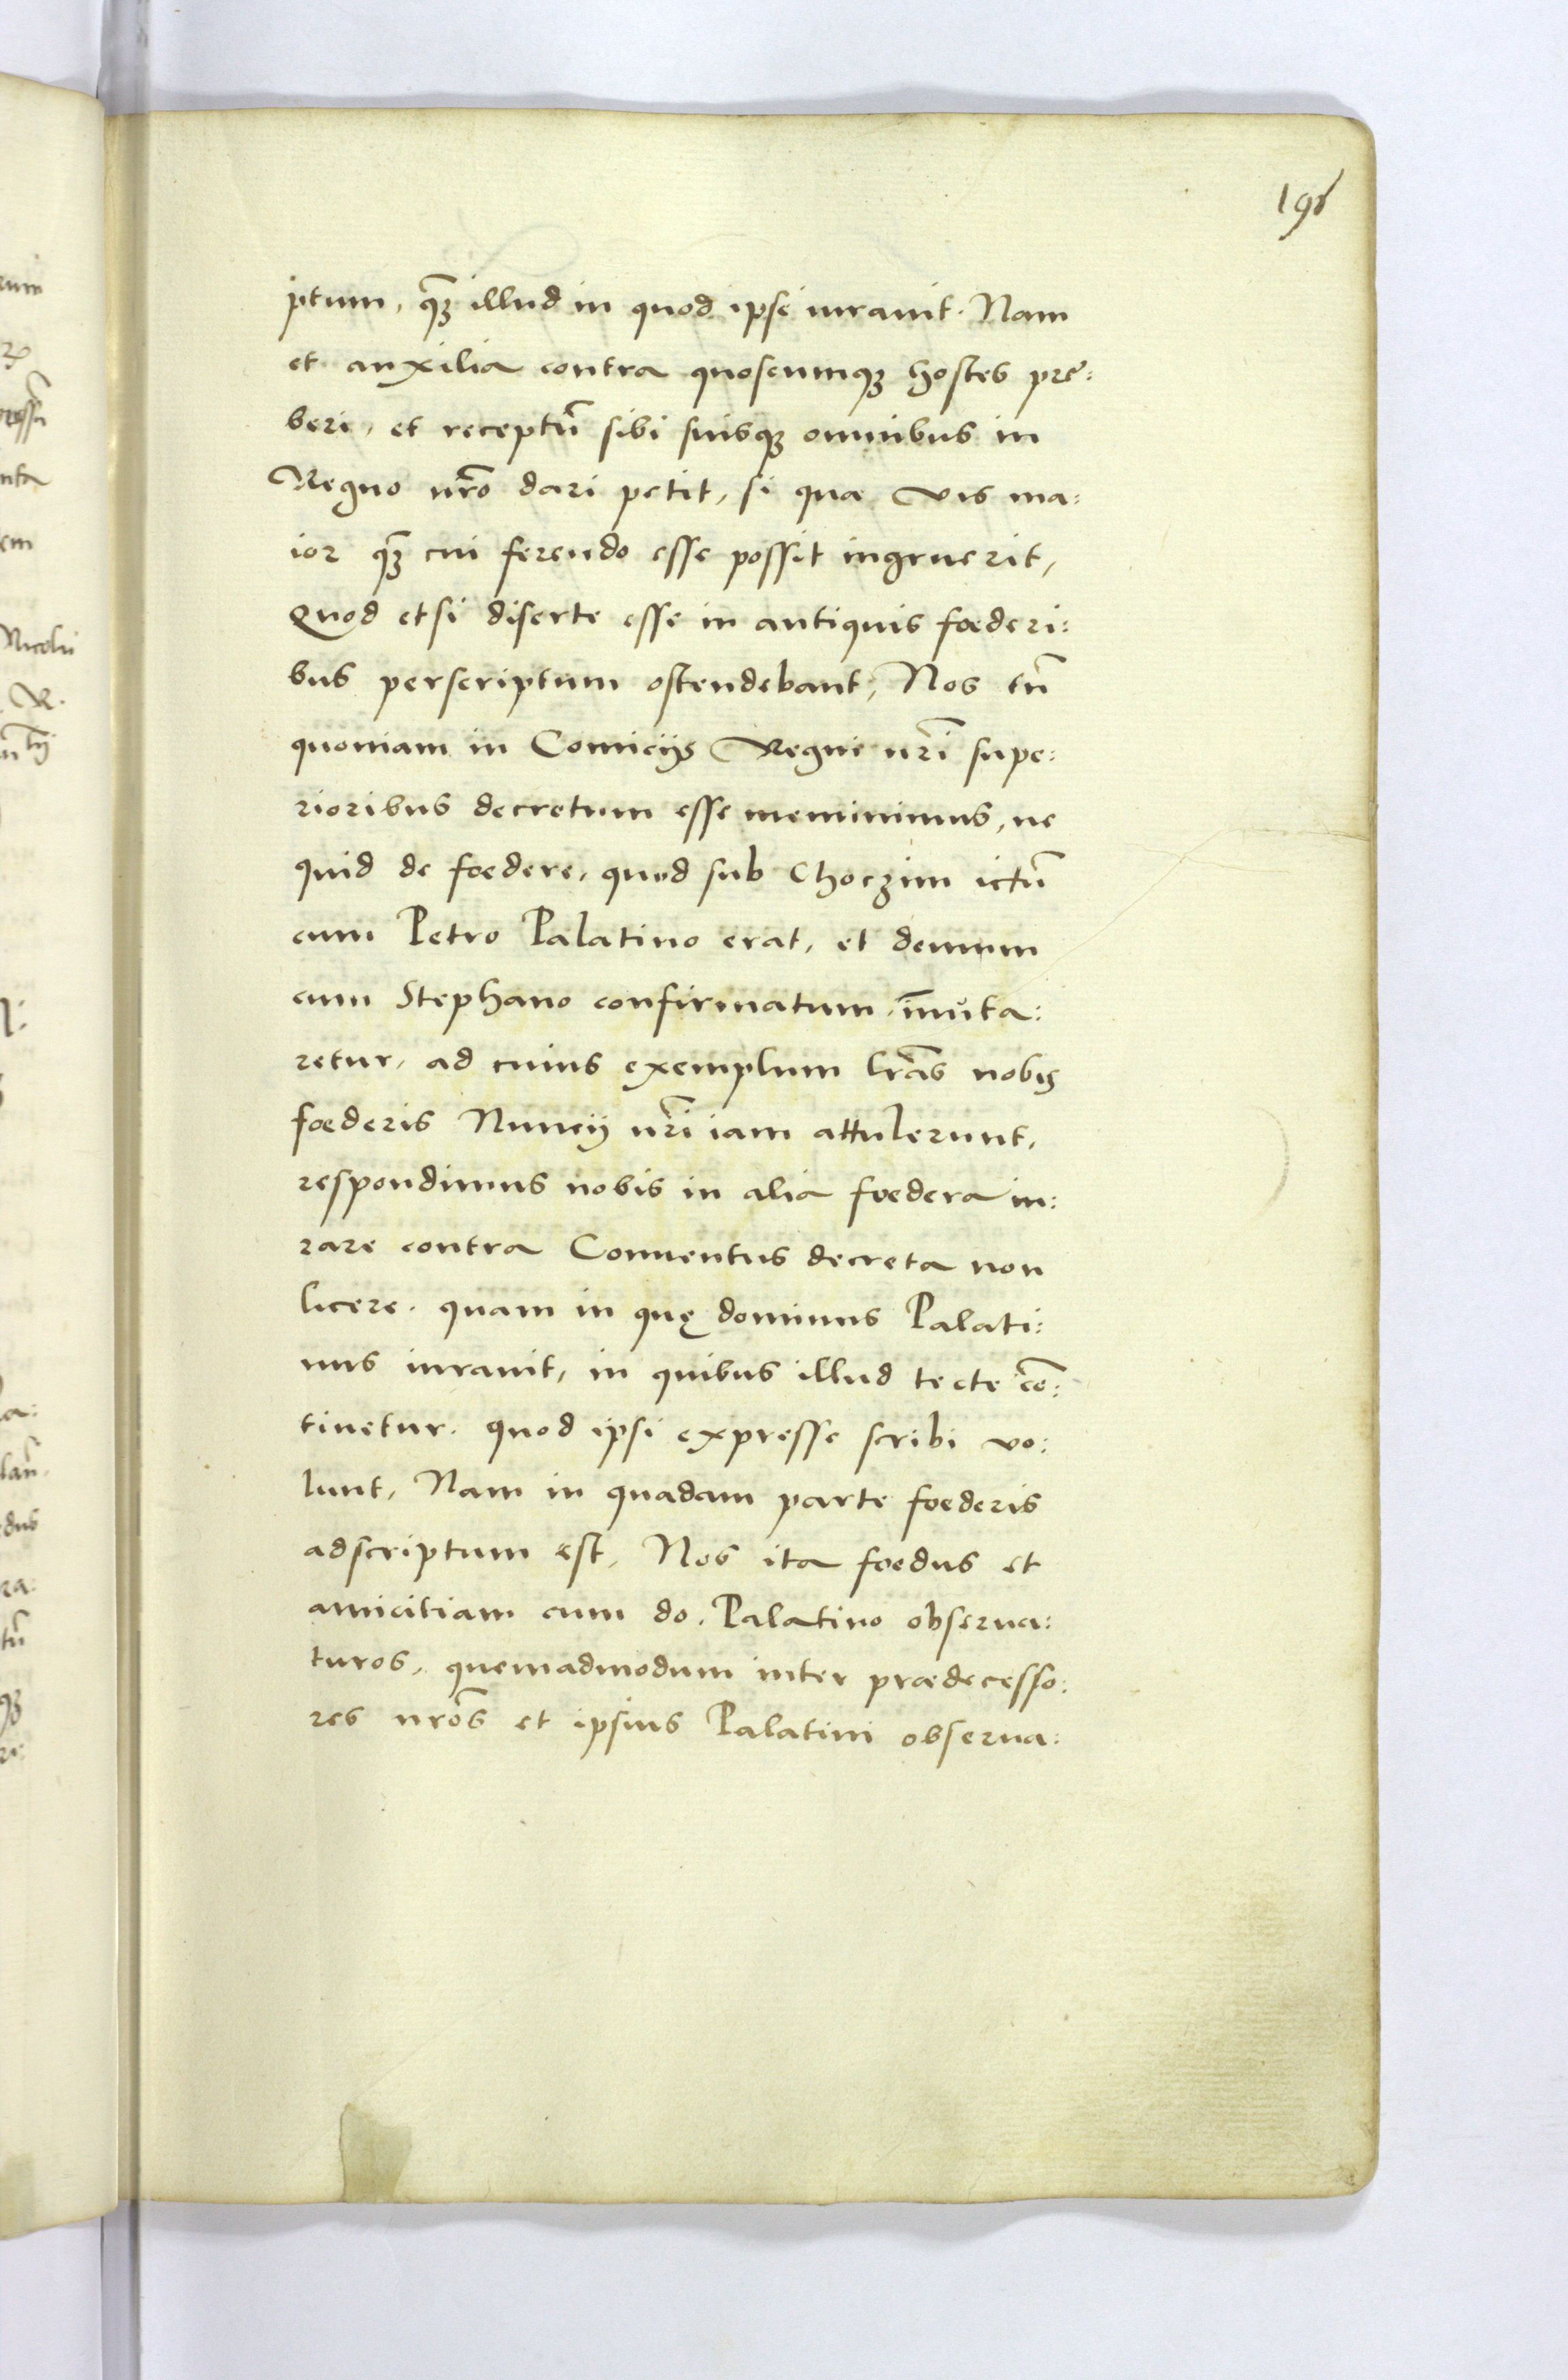 198
ptum, quã illud in quod ipse iurauit. Nam
et auxilia contra quoscumqʒ hostes pre:
beri, et receptũ sibi suisqʒ omnibus in
Regno nr̃o dari petit, si qua vis ma:
ior quã cui ferendo esse possit ingruerit,
Quod etsi diserte esse in antiquis foederi:
bus perscriptum ostendebant, Nos tñ
quoniam in Comicijs Regni nr̃i supe:
rioribus decretum esse meminimus, ne
quid de foedere, quod sub Choczim ictũ
cum Petro Palatino erat, et demum
cum Stephano confirmatum, im̃uta:
retur, ad cuius exemplum lr̃as nobis
foederis Nuncij nr̃i iam attulerunt,
respondimus nobis in alia foedera iu:
rare contra Conuentus decreta non
licere. quam in quę dominus Palati:
nus iurauit, in quibus illud tecte cõ:
tinetur. quod ipsi expresse scribi vo:
lunt, Nam in quadam parte foederis
adscriptum est, Nos ita foedus et
amicitiam cum do. Palatino obserua:
turos, quemadmodum inter prædecesso:
res nr̃os et ipsius Palatini obserua: